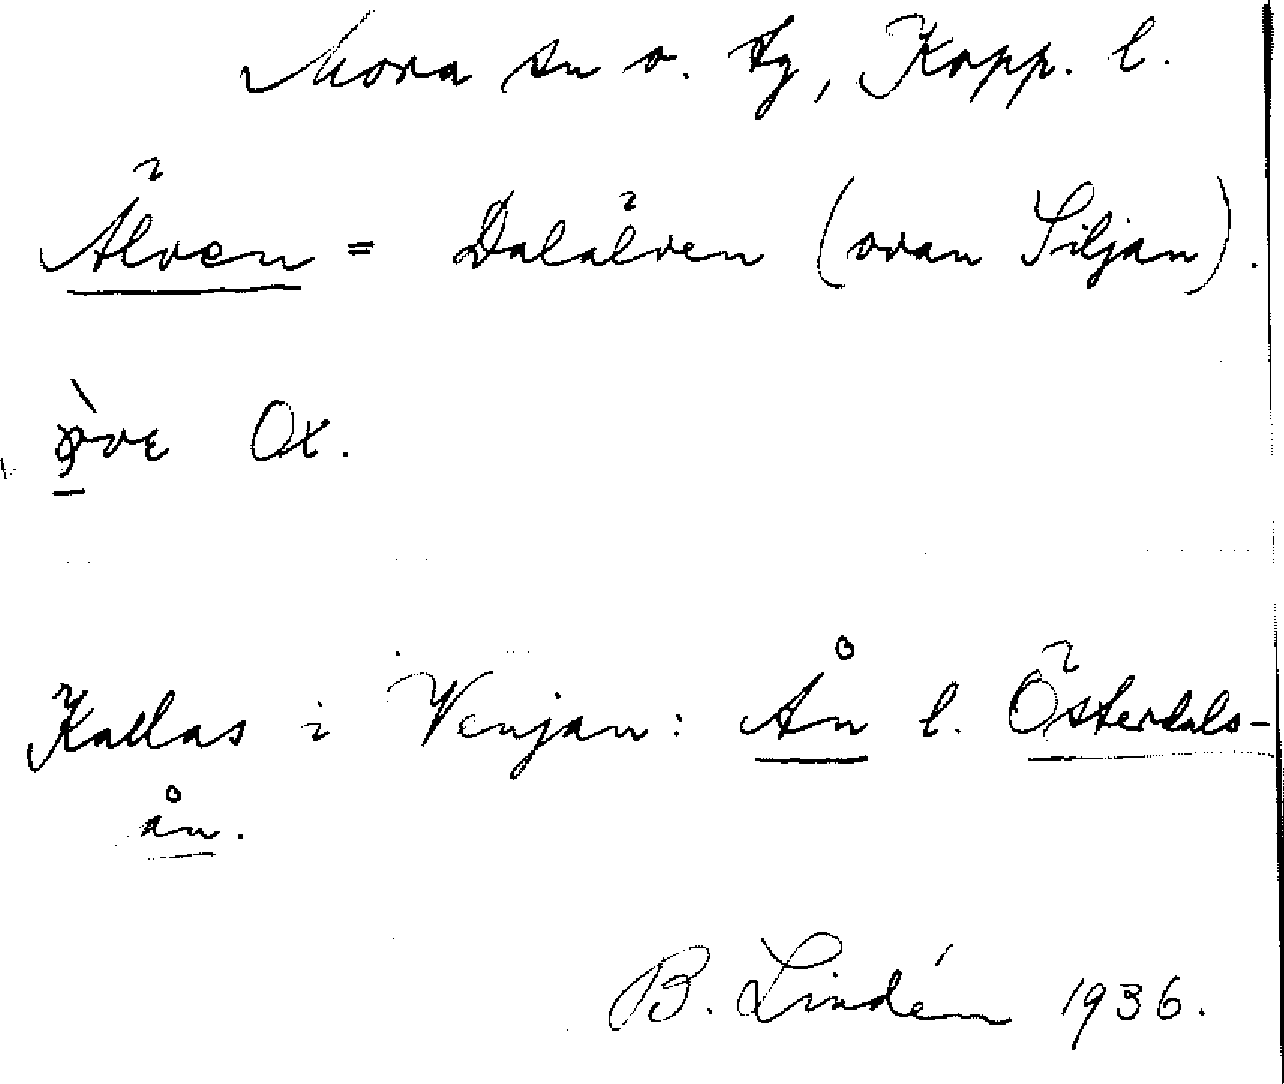 Mora sn o. tg, Kopp. l.
Älven = Dalälven (ovan Siljan).
Ox.
Kallas i Venjan: Ån l. Österdals-
ån.
B. Lindén 1936.